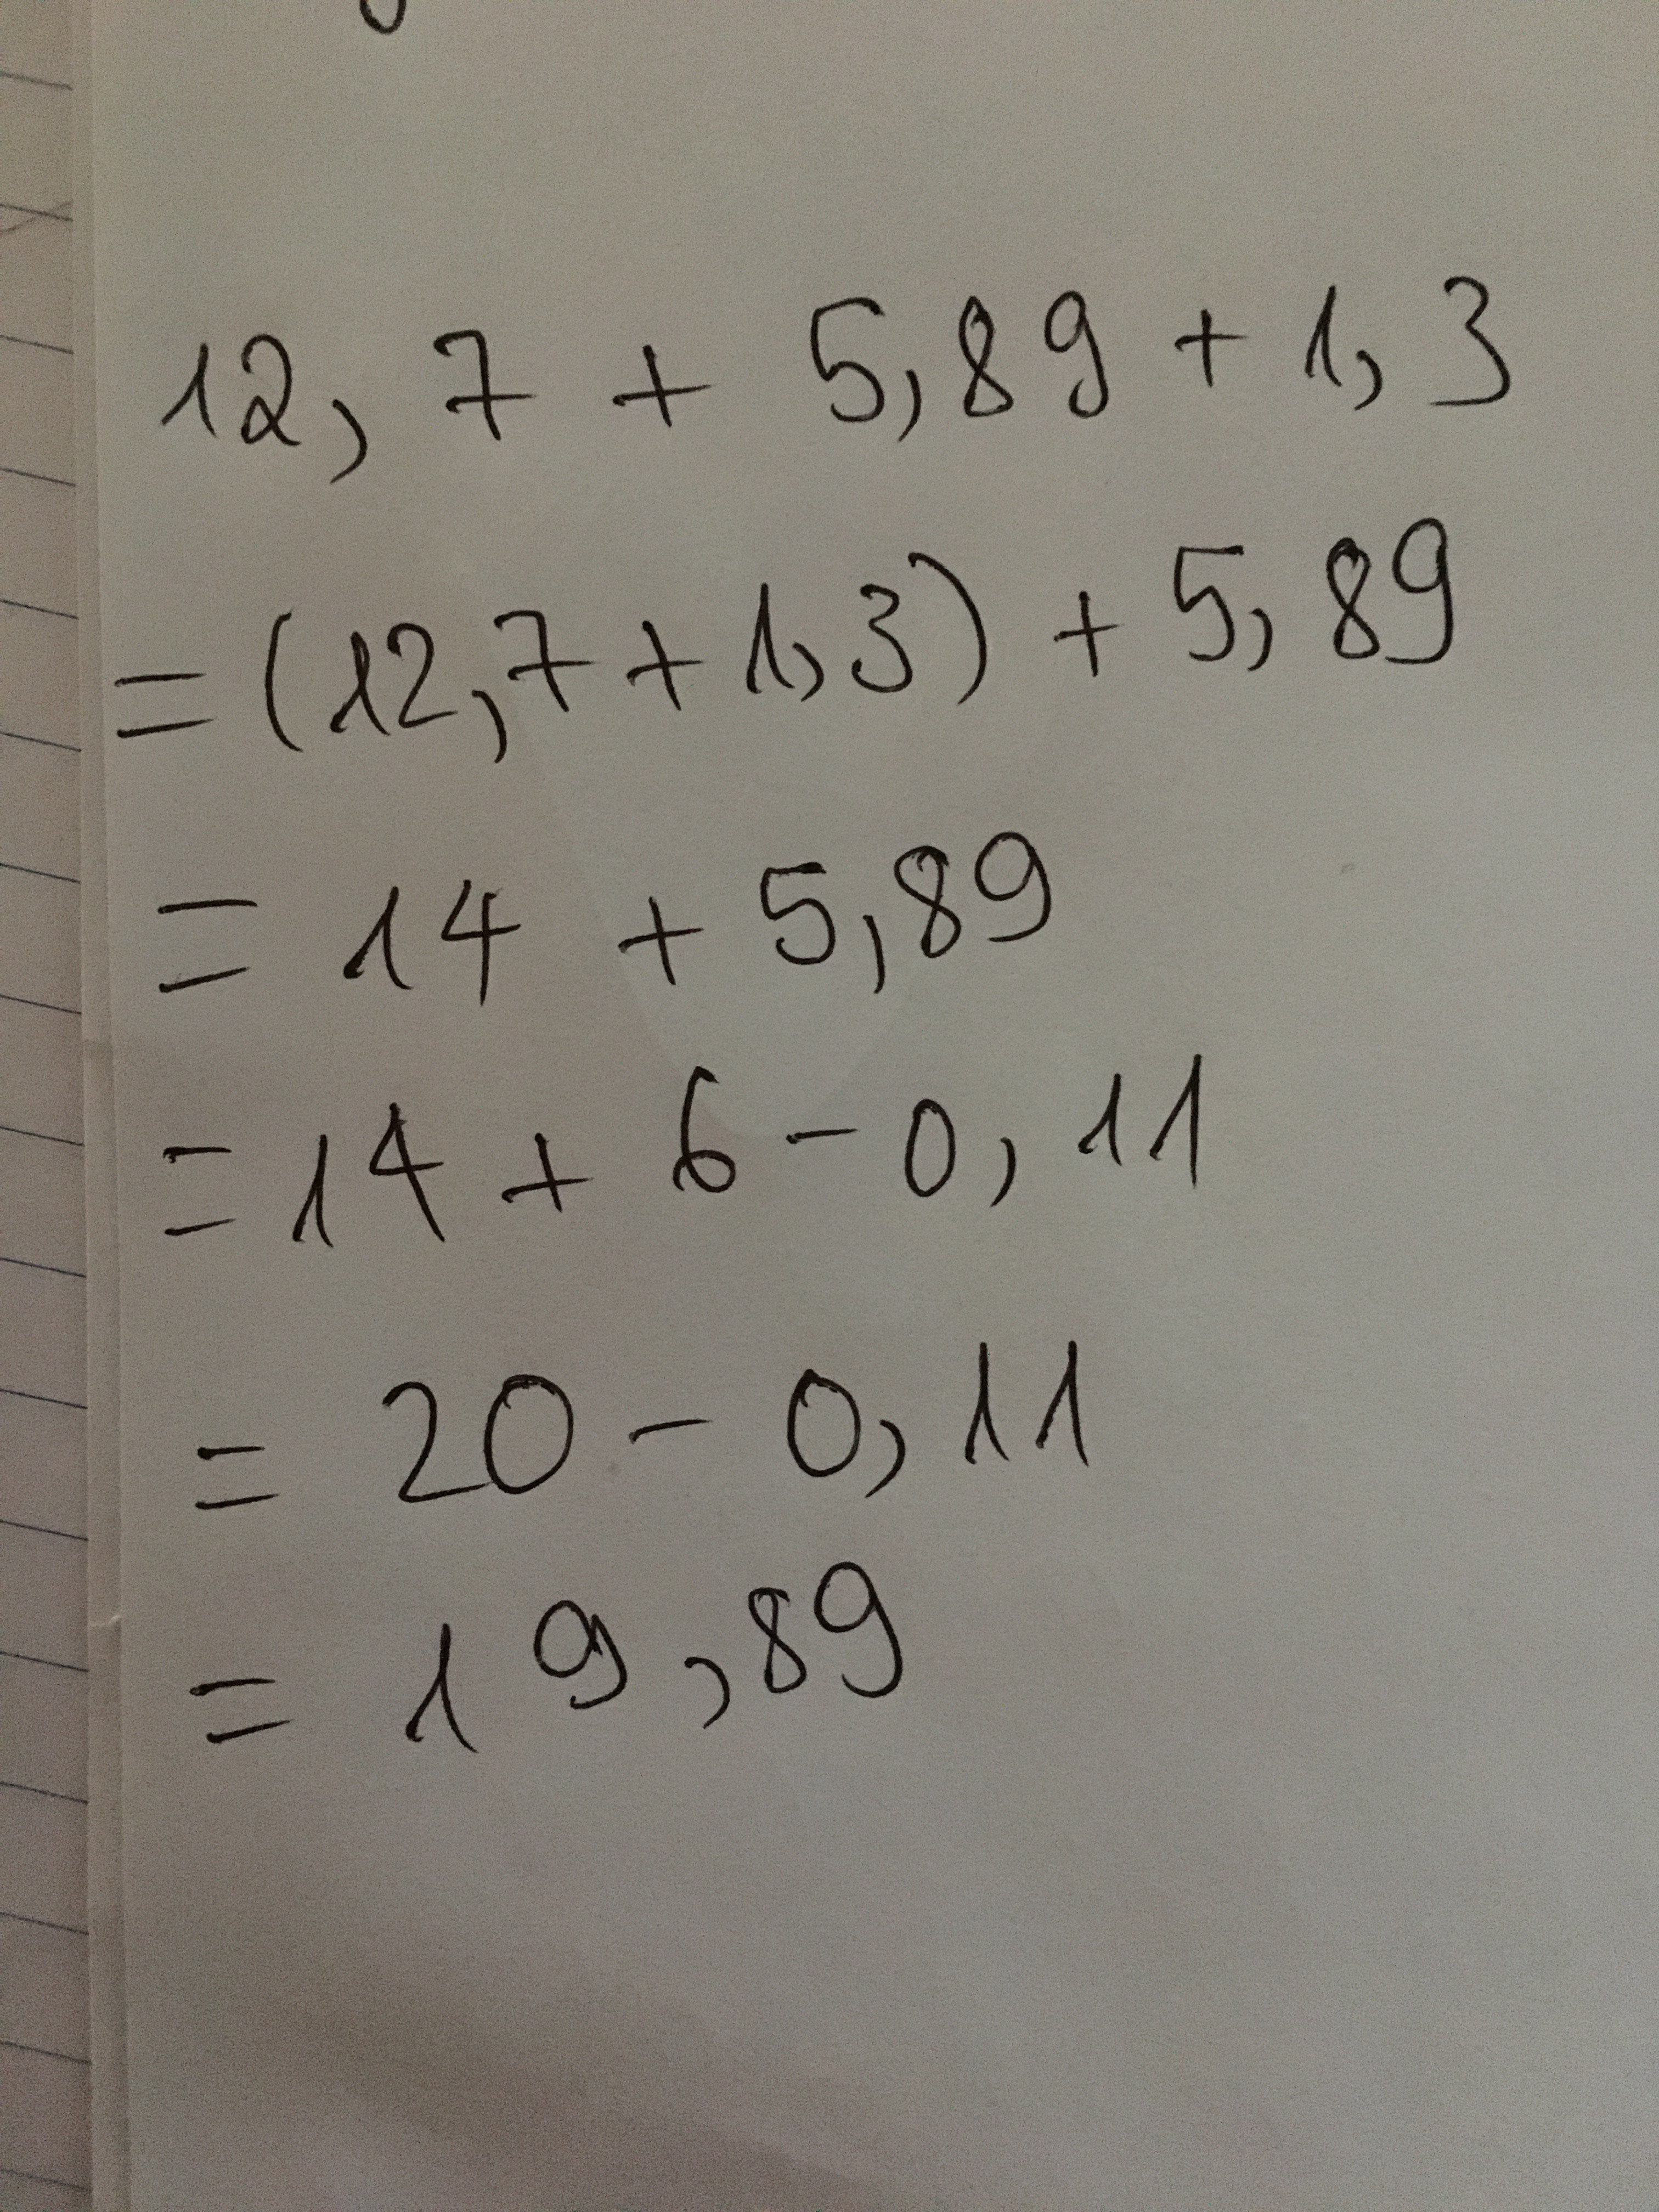 12,7 + 5,89 + 1,3
= (12,7 + 1,3) + 5,89
= 14 + 5,89
= 14 + 6 - 0,11
= 20 - 0,11
= 19,89